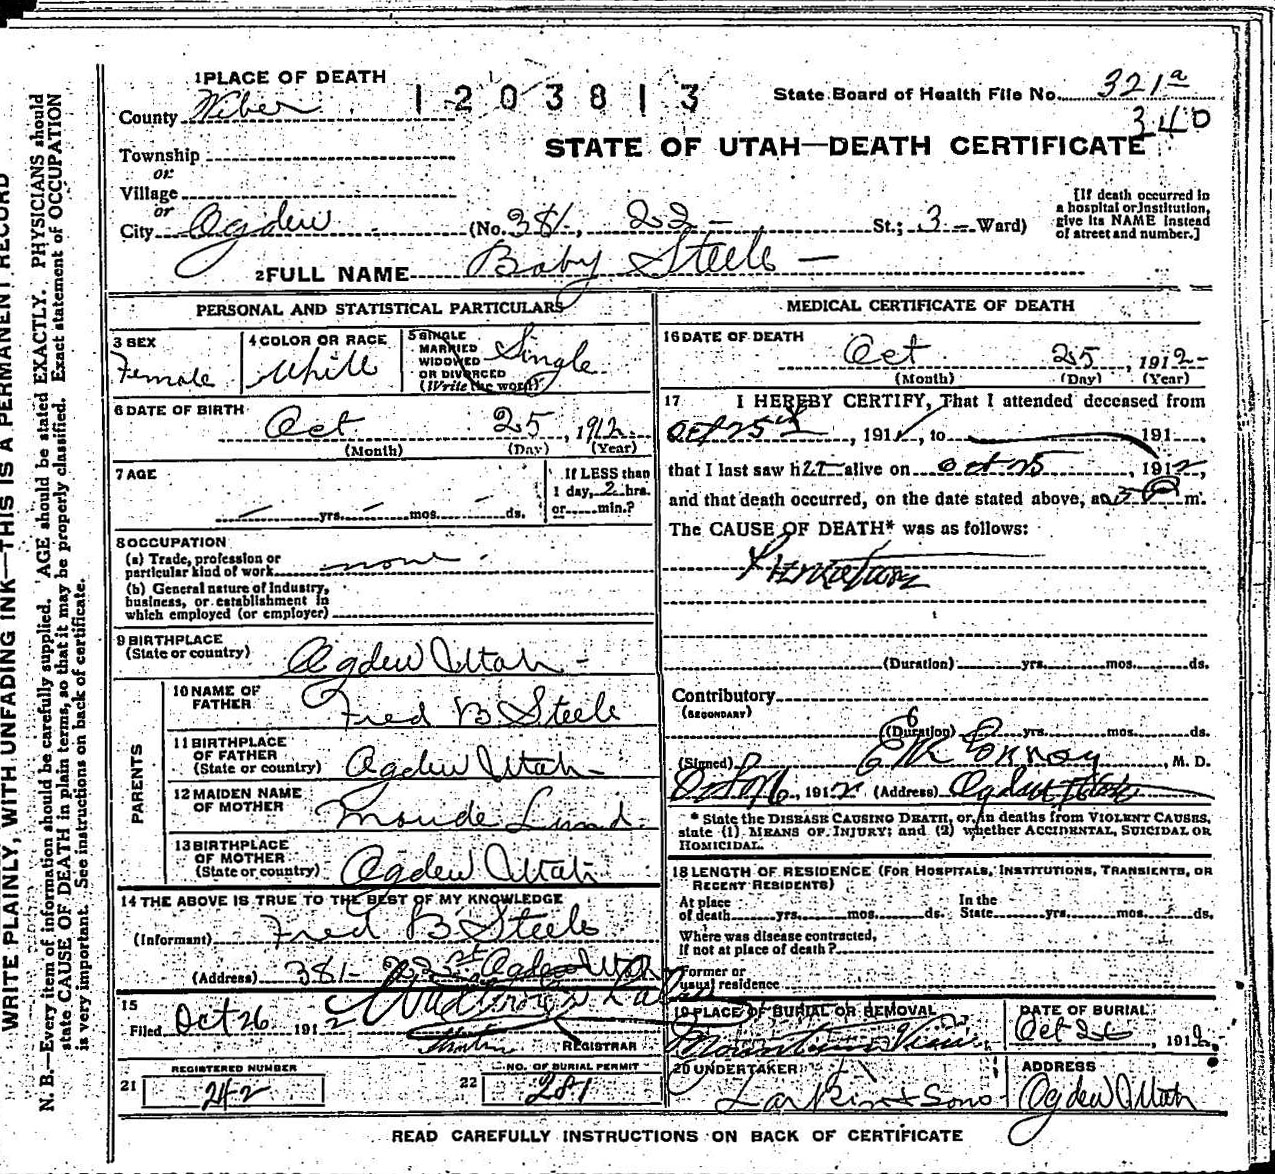 1 PLACE OF DEATH
1203813
State Board of Health File No. 321a
340
County Weber
STATE OF UTAH—DEATH CERTIFICATE
Township
or
Village
or
City Ogden (No. 381, 22 - St.; 3 - Ward)
[If death occurred in a hospital or institution, give its NAME instead of street and number.]
2 FULL NAME Baby Steele —
PERSONAL AND STATISTICAL PARTICULARS
3 SEX Female
4 COLOR OR RACE White
5 SINGLE MARRIED WIDOWED OR DIVORCED (Write the word) Single
6 DATE OF BIRTH
Oct 25, 1912
(Month) (Day) (Year)
7 AGE
yrs. mos. ds.
If LESS than 1 day, 2 hrs. or min.?
8 OCCUPATION
(a) Trade, profession or particular kind of work none
(b) General nature of Industry, business, or establishment in which employed (or employer)
9 BIRTHPLACE (State or country) Ogden Utah -
PARENTS
10 NAME OF FATHER Fred B Steele
11 BIRTHPLACE OF FATHER (State or country) Ogden Utah -
12 MAIDEN NAME OF MOTHER Maude Lund
13 BIRTHPLACE OF MOTHER (State or country) Ogden Utah
14 THE ABOVE IS TRUE TO THE BEST OF MY KNOWLEDGE
(Informant) Fred B Steele
(Address) 381- Ogden Utah
15
Filed Oct 26 1912
REGISTRAR
REGISTERED NUMBER
21 242
NO. OF BURIAL PERMIT
22 281
MEDICAL CERTIFICATE OF DEATH
16 DATE OF DEATH
Oct 25, 1912
(Month) (Day) (Year)
17 I HEREBY CERTIFY, That I attended deceased from
Oct 25th, 191 , to 191 ,
that I last saw her alive on Oct 25, 1912,
and that death occurred, on the date stated above, at m.
The CAUSE OF DEATH* was as follows:
(Duration) yrs. mos. ds.
Contributory
(SECONDARY)
(Duration) yrs. mos. ds.
(Signed) M. D.
1912 (Address) Ogden Utah
* State the DISEASE CAUSING DEATH, or, in deaths from VIOLENT CAUSES,
state (1) MEANS OF INJURY; and (2) whether ACCIDENTAL, SUICIDAL OR
HOMICIDAL.
18 LENGTH OF RESIDENCE (FOR HOSPITALS, INSTITUTIONS, TRANSIENTS, OR RECENT RESIDENTS)
At place of death yrs. mos. ds. In the State yrs. mos. ds.
Where was disease contracted, if not at place of death?
Former or usual residence
19 PLACE OF BURIAL OR REMOVAL Mountain View
DATE OF BURIAL Oct 26, 1912
20 UNDERTAKER Larkin & Sons
ADDRESS Ogden Utah
READ CAREFULLY INSTRUCTIONS ON BACK OF CERTIFICATE
WRITE PLAINLY, WITH UNFADING INK—THIS IS A PERMANENT RECORD
N. B.—Every item of information should be carefully supplied. AGE should be stated EXACTLY. PHYSICIANS should
state CAUSE OF DEATH in plain terms, so that it may be properly classified. Exact statement of OCCUPATION
is very important. See instructions on back of certificate.